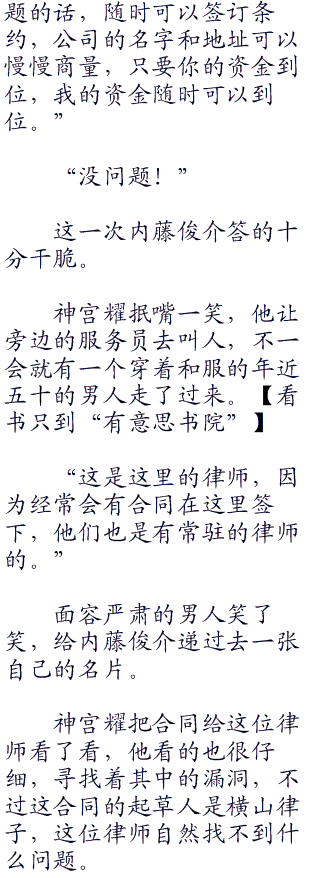 题的话，随时可以签订条
约，公司的名字和地址可以
慢慢商量，只要你的资金到
位，我的资金随时可以到
位。”
“没问题！”
这一次内藤俊介答的十
分干脆。
神宫耀抿嘴一笑，他让
旁边的服务员去叫人，不一
会就有一个穿着和服的年近
五十的男人走了过来。【看
书只到“有意思书院”】
“这是这里的律师，因
为经常会有合同在这里签
下，他们也是有常驻的律师
的。”
面容严肃的男人笑了
笑，给内藤俊介递过去一张
自己的名片。
神宫耀把合同给这位律
师看了看，他看的也很仔
细，寻找着其中的漏洞，不
过这合同的起草人是横山律
子，这位律师自然找不到什
么问题。